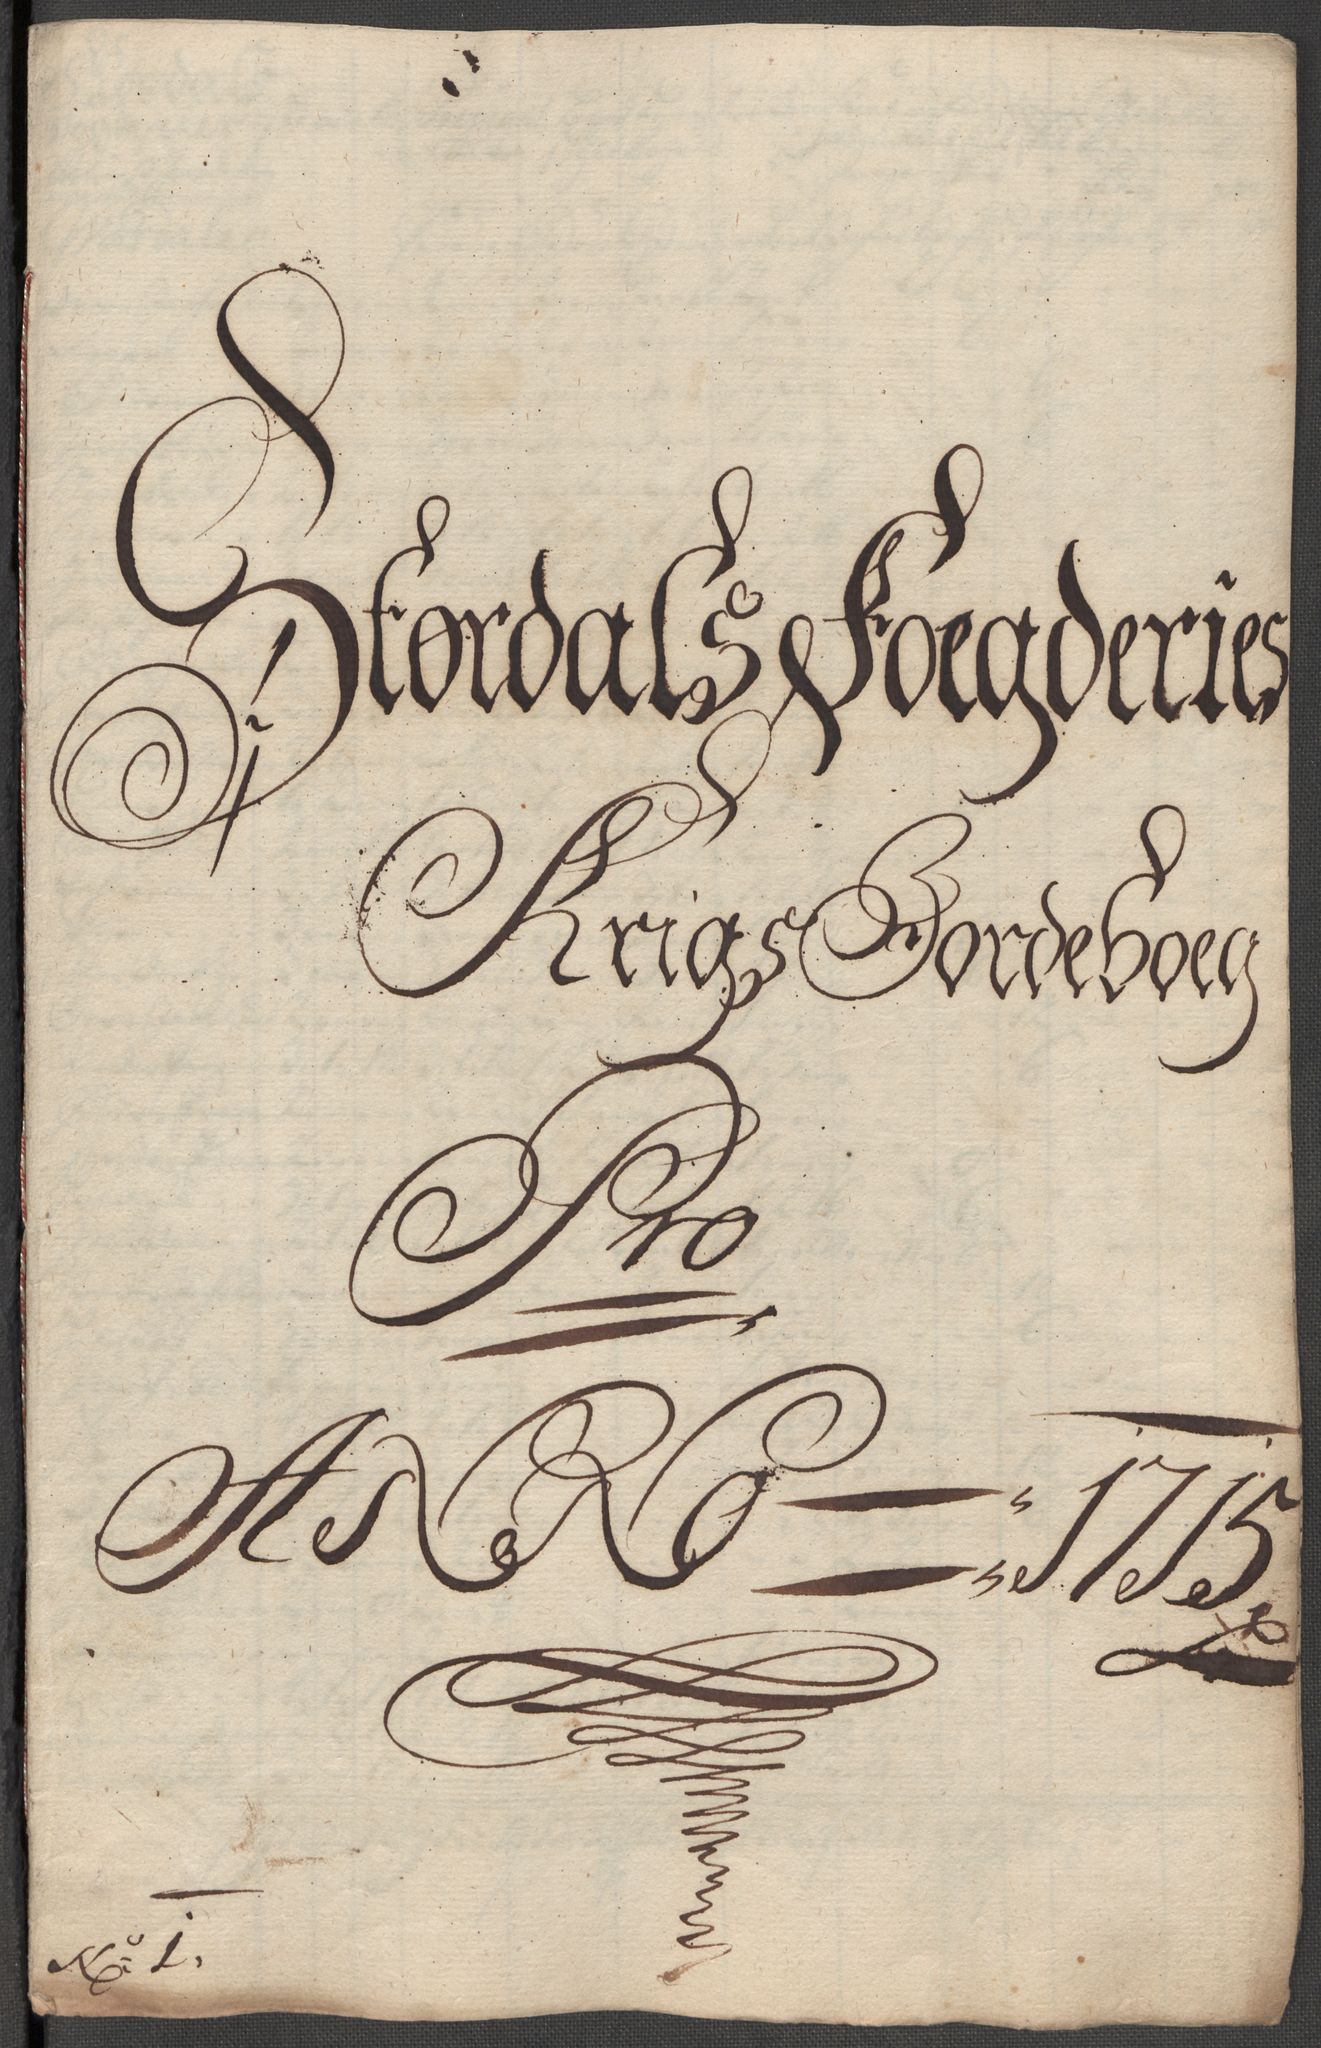 Størdals Foegderies
Krigs Jordeboeg
Pro
ANNO 1715
No 1.